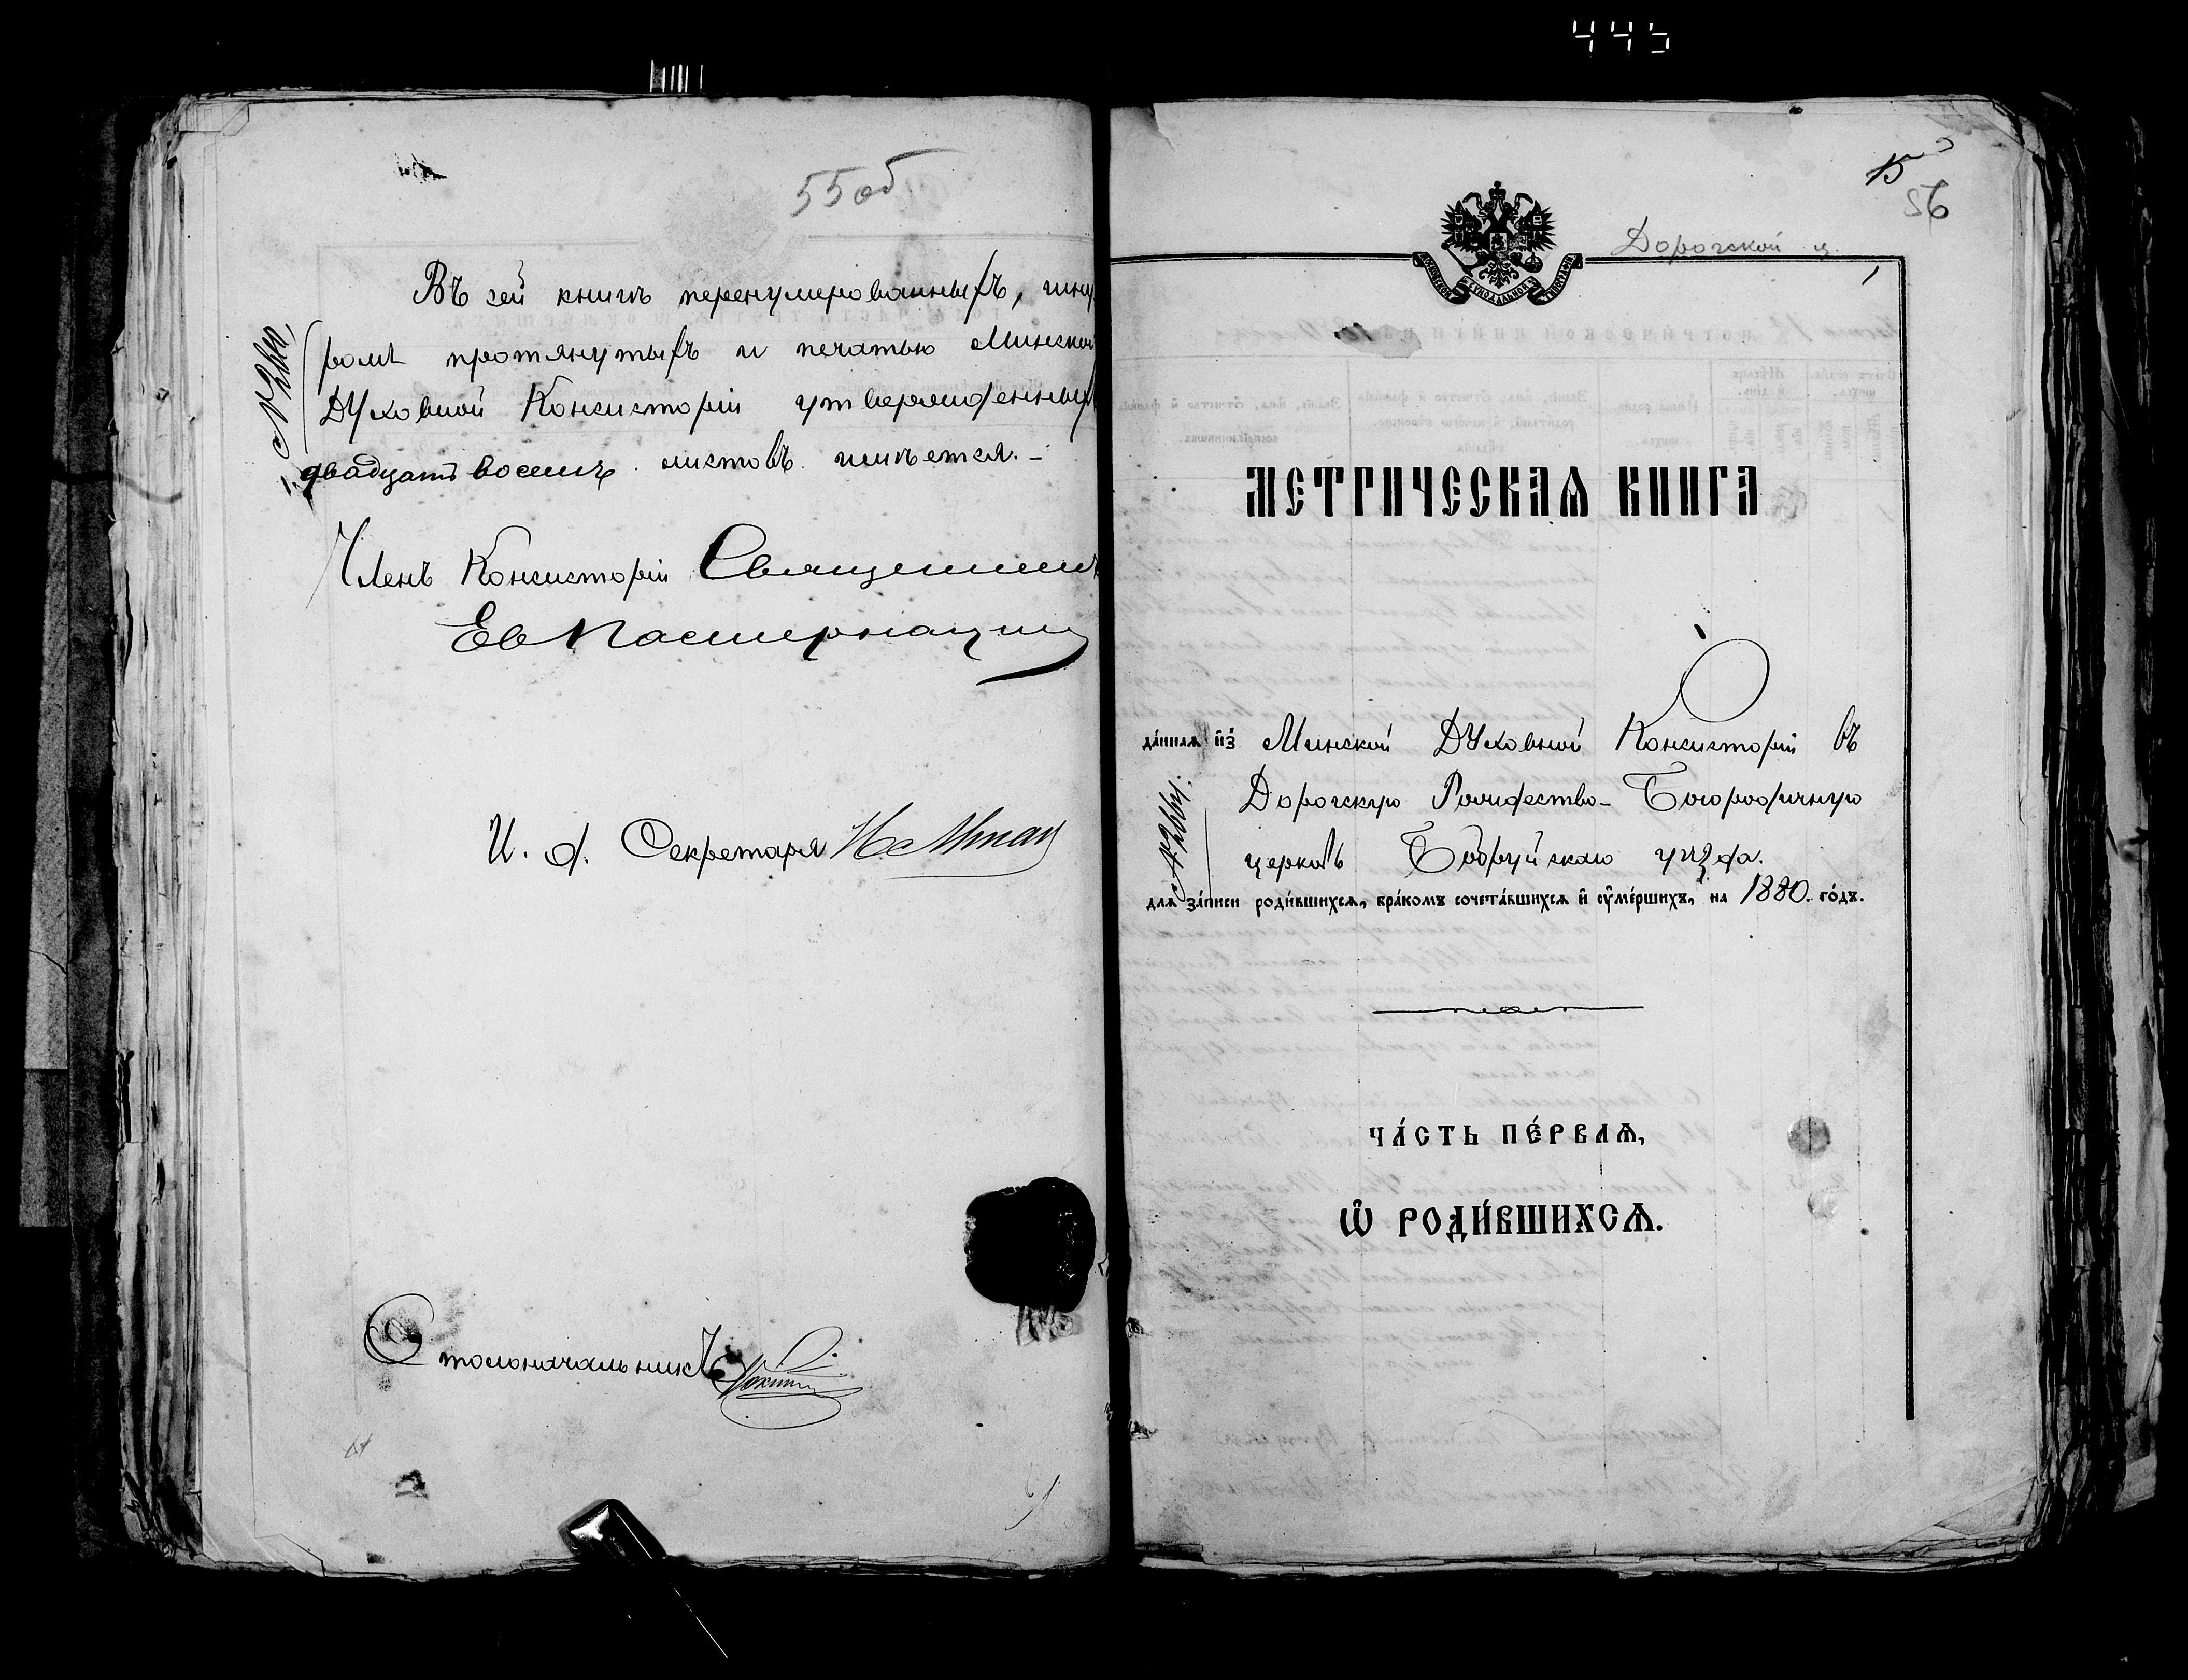 445
55 об
Въ сей книгѣ перенумерованныхъ, шну
ромъ протянутыхъ и печатью Минской
Духовной Консисторіи утвержденныхъ
двадцать восемь листовъ имѣется.-
Членъ Консисторіи Священникъ
И. д. Секретаря
Столоначальникъ
15
56
Дорогской ц.
1
МОСКОВСКОЙ СѴНОДАЛЬНОЙ ТИПОГРАФІИ
МЕТРИЧЕСКАѦ КНИГА
да́ннаѧ и҆з̾ Минской Духовной Консисторіи въ
Дорогскую Рождество-Богородичную
церковь Бобруйскаго уѣзда.
длѧ за́писи роди́вшихсѧ, бра́комъ сочета́вшихсѧ и҆ ᲂу҆ме́ршихъ, на 1880. го́дъ.
ЧА́СТЬ ПЕ́РВАѦ,
Ѽ РОДИ́ВШИХСѦ.